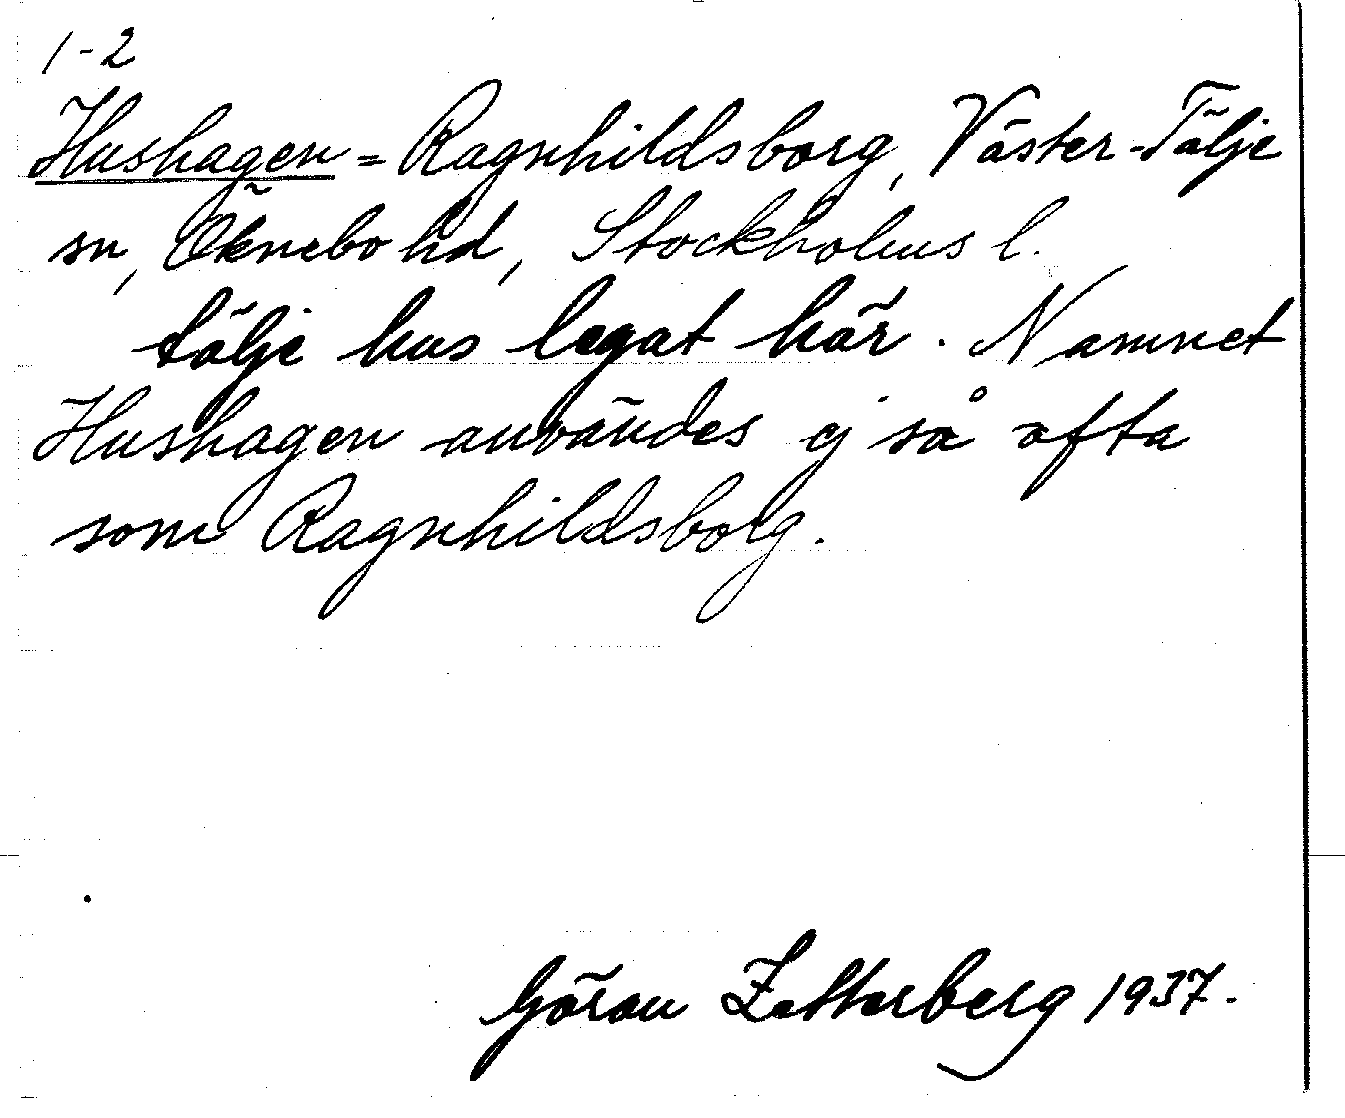 1-2
Hushagen = Ragnhildsborg, Väster-Tälje
sn, Öknebo hd, Stockholms l.
tälje hus legat här. Namnet
Hushagen användes ej så ofta
som Ragnhildsborg.
Göran Zetterberg 1937.